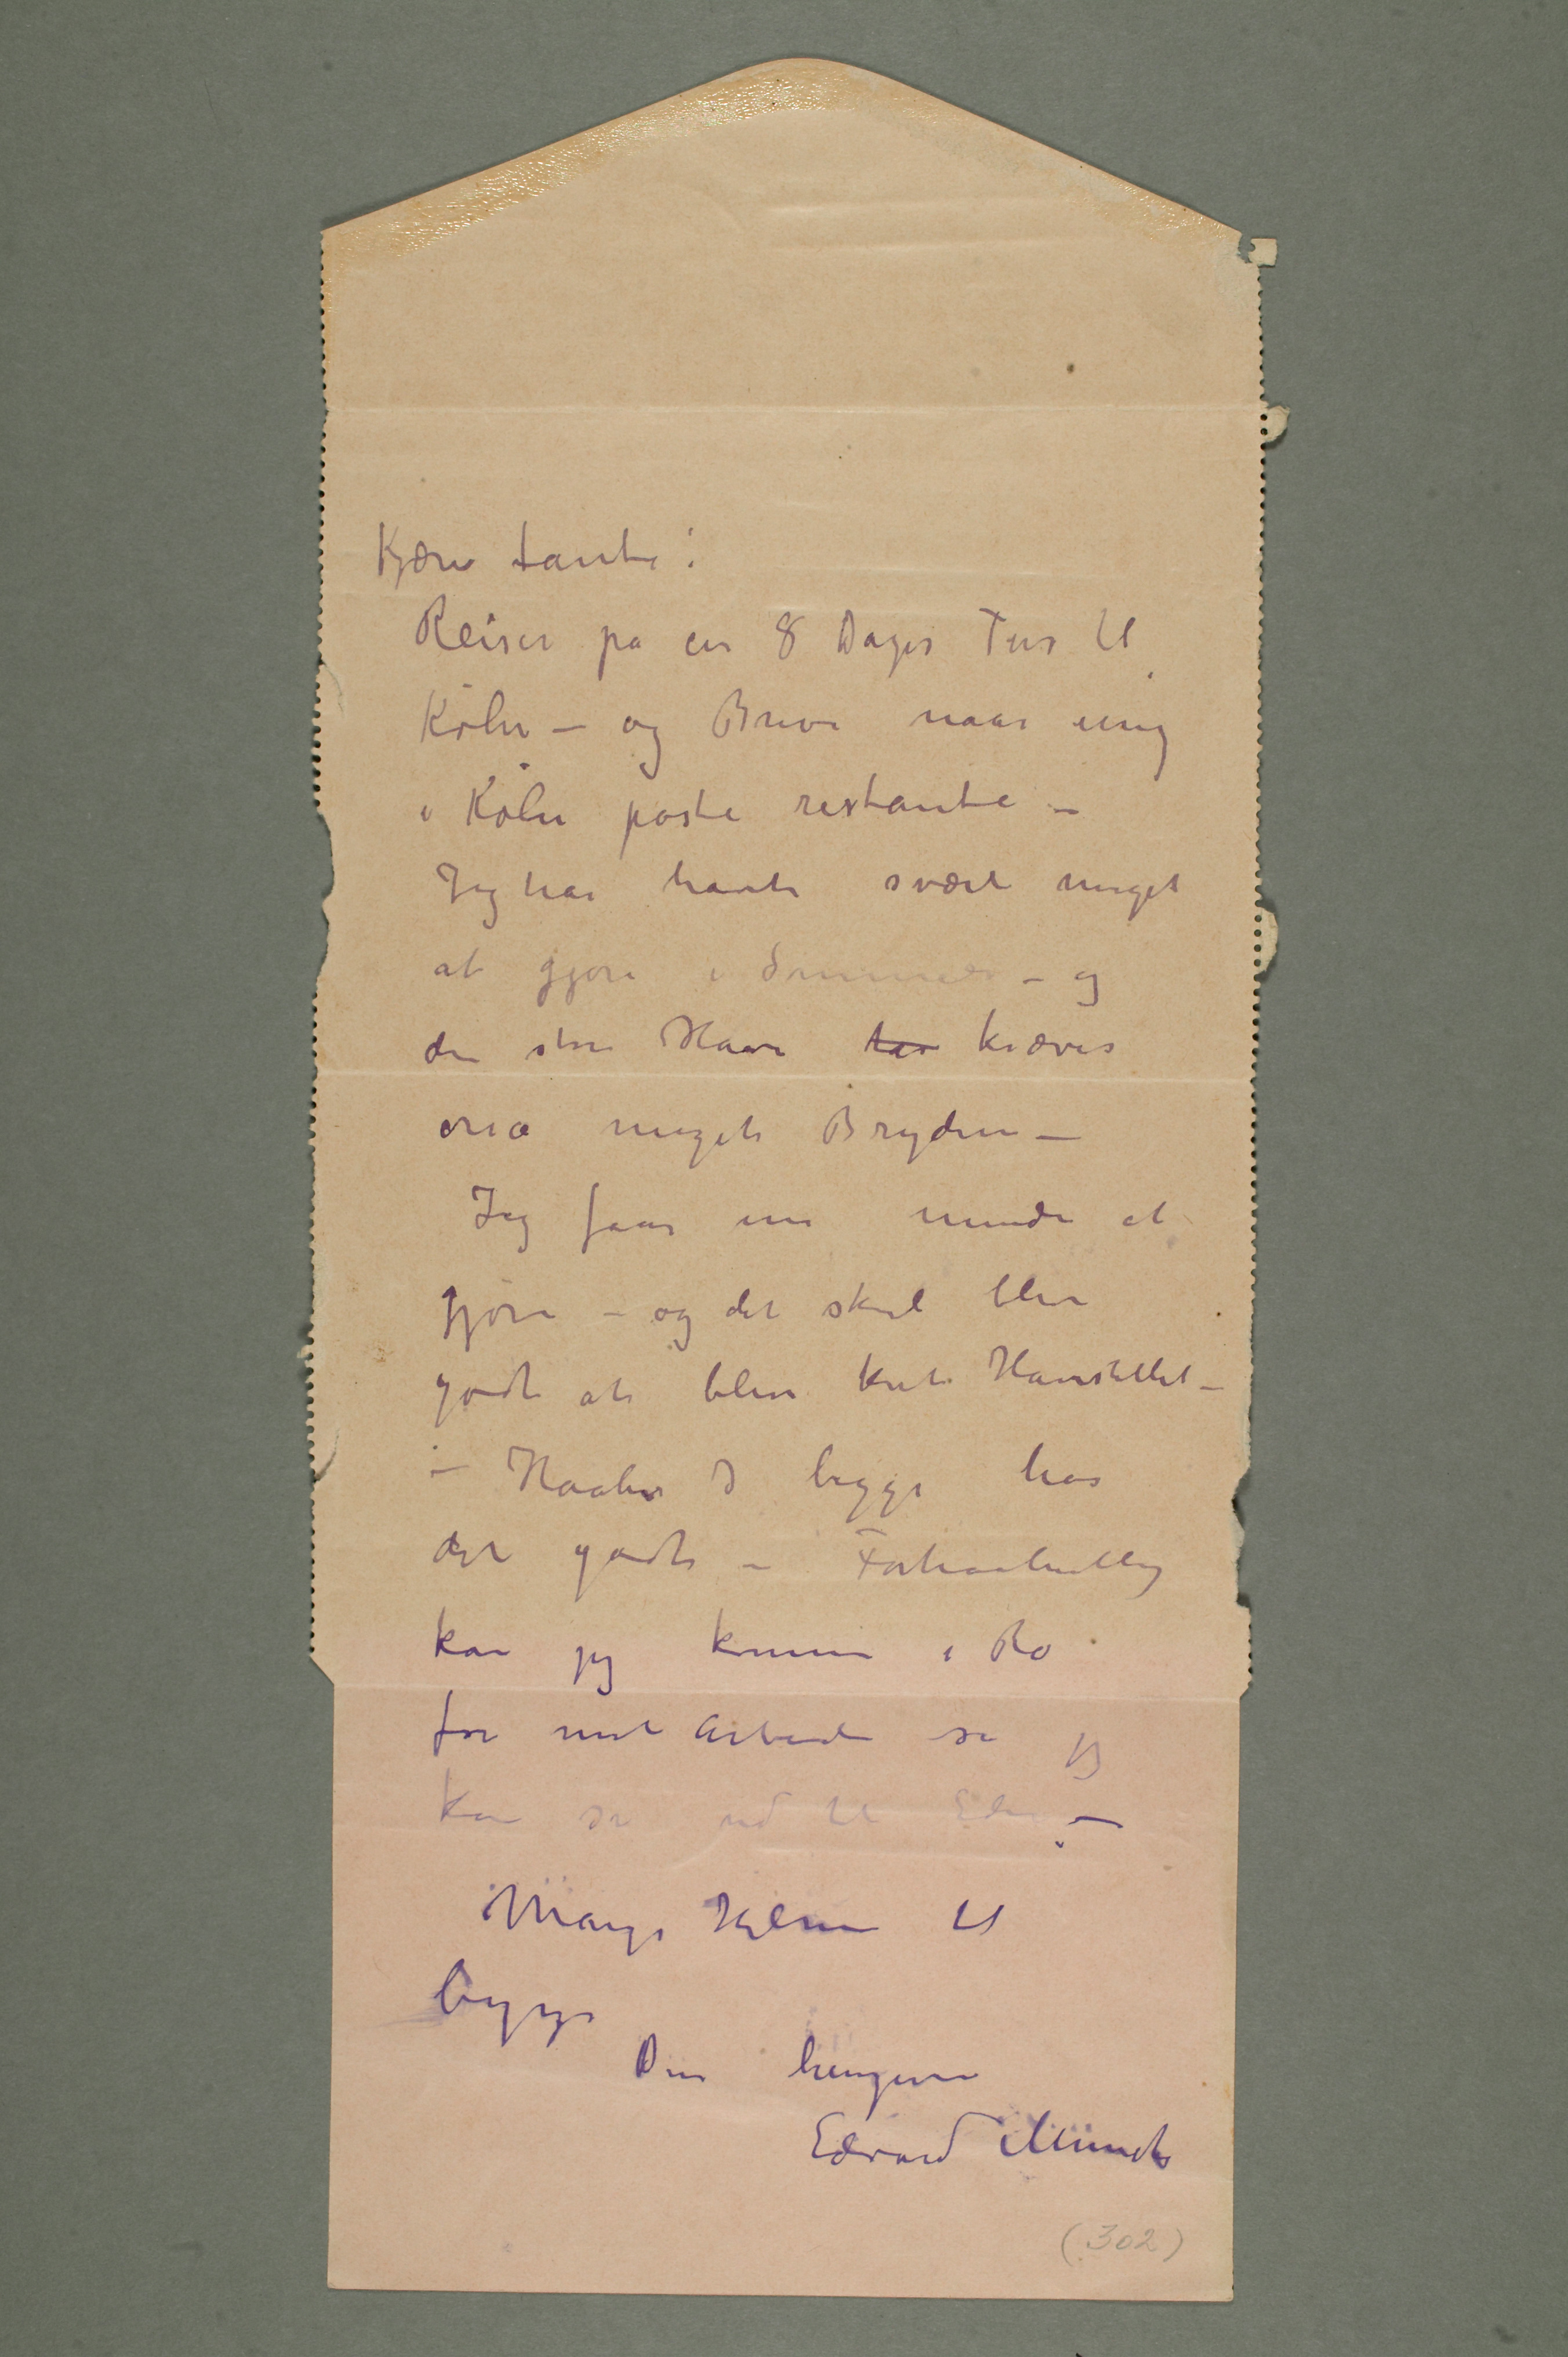 Kjære tante!
Reiser på en 8 Dages Tur til
Köln – og Breve naar mig
i Köln poste restante –
Jeg har havt svært meget
at gjøre i Sommer – og
den store Have har kræver
osså meget Bryderi –
Jeg faar nu mindre at
gjøre – og det skal blive
godt at blive kvit Havestellet –
– Haaber I begge har
det godt – Forhaabentlig
kan jeg komme i Ro
for mit Arbeide så jeg
kan se ud til Eder –
Mange Hilsener til
begge
Din hengivne
Edvard Munch
(302)